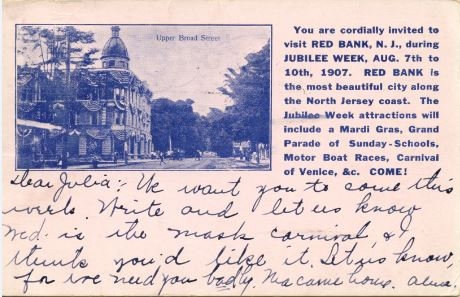 Upper Broad Street
You are cordially invited to
visit RED BANK, N. J., during
JUBILEE WEEK, AUG. 7th to
10th, 1907. RED BANK is
the most beautiful city along
the North Jersey coast. The
Jubilee Week attractions will
include a Mardi Gras, Grand
Parade of Sunday-Schools,
Motor Boat Races, Carnival
of Venice, &c. COME!
Dear Julia:- We want you to come this
week. Write and let us know
Wed. is the mask carnival, & I
think you'd like it. Let us know,
for we need you badly. Ma came home. Alma.